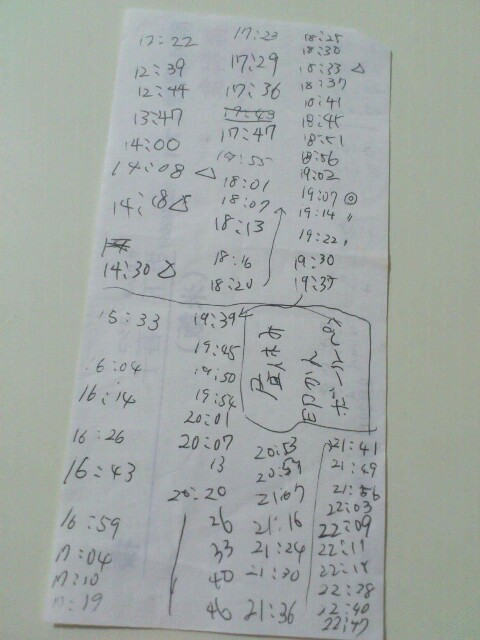 12:22
12:39
12:44
13:47
14:00
14:08 △
14:18 △
14:30 △
17:23
17:29
17:36
17:43
17:47
17:55
18:01
18:07
18:13
18:16
18:20
18:25
18:30
18:33 △
18:37
18:41
18:45
18:51
18:56
19:02
19:07 ◎
19:14 〃
19:22 〃
19:30
19:35
15:33
16:04
16:14
16:26
16:43
16:59
17:04
17:10
17:19
19:39
19:45
19:50
19:54
20:01
20:07
13
20:20
26
33
40
46
20:53
20:59
21:07
21:16
21:24
21:30
21:36
21:41
21:49
21:56
22:03
22:09
22:11
22:28
22:40
22:47